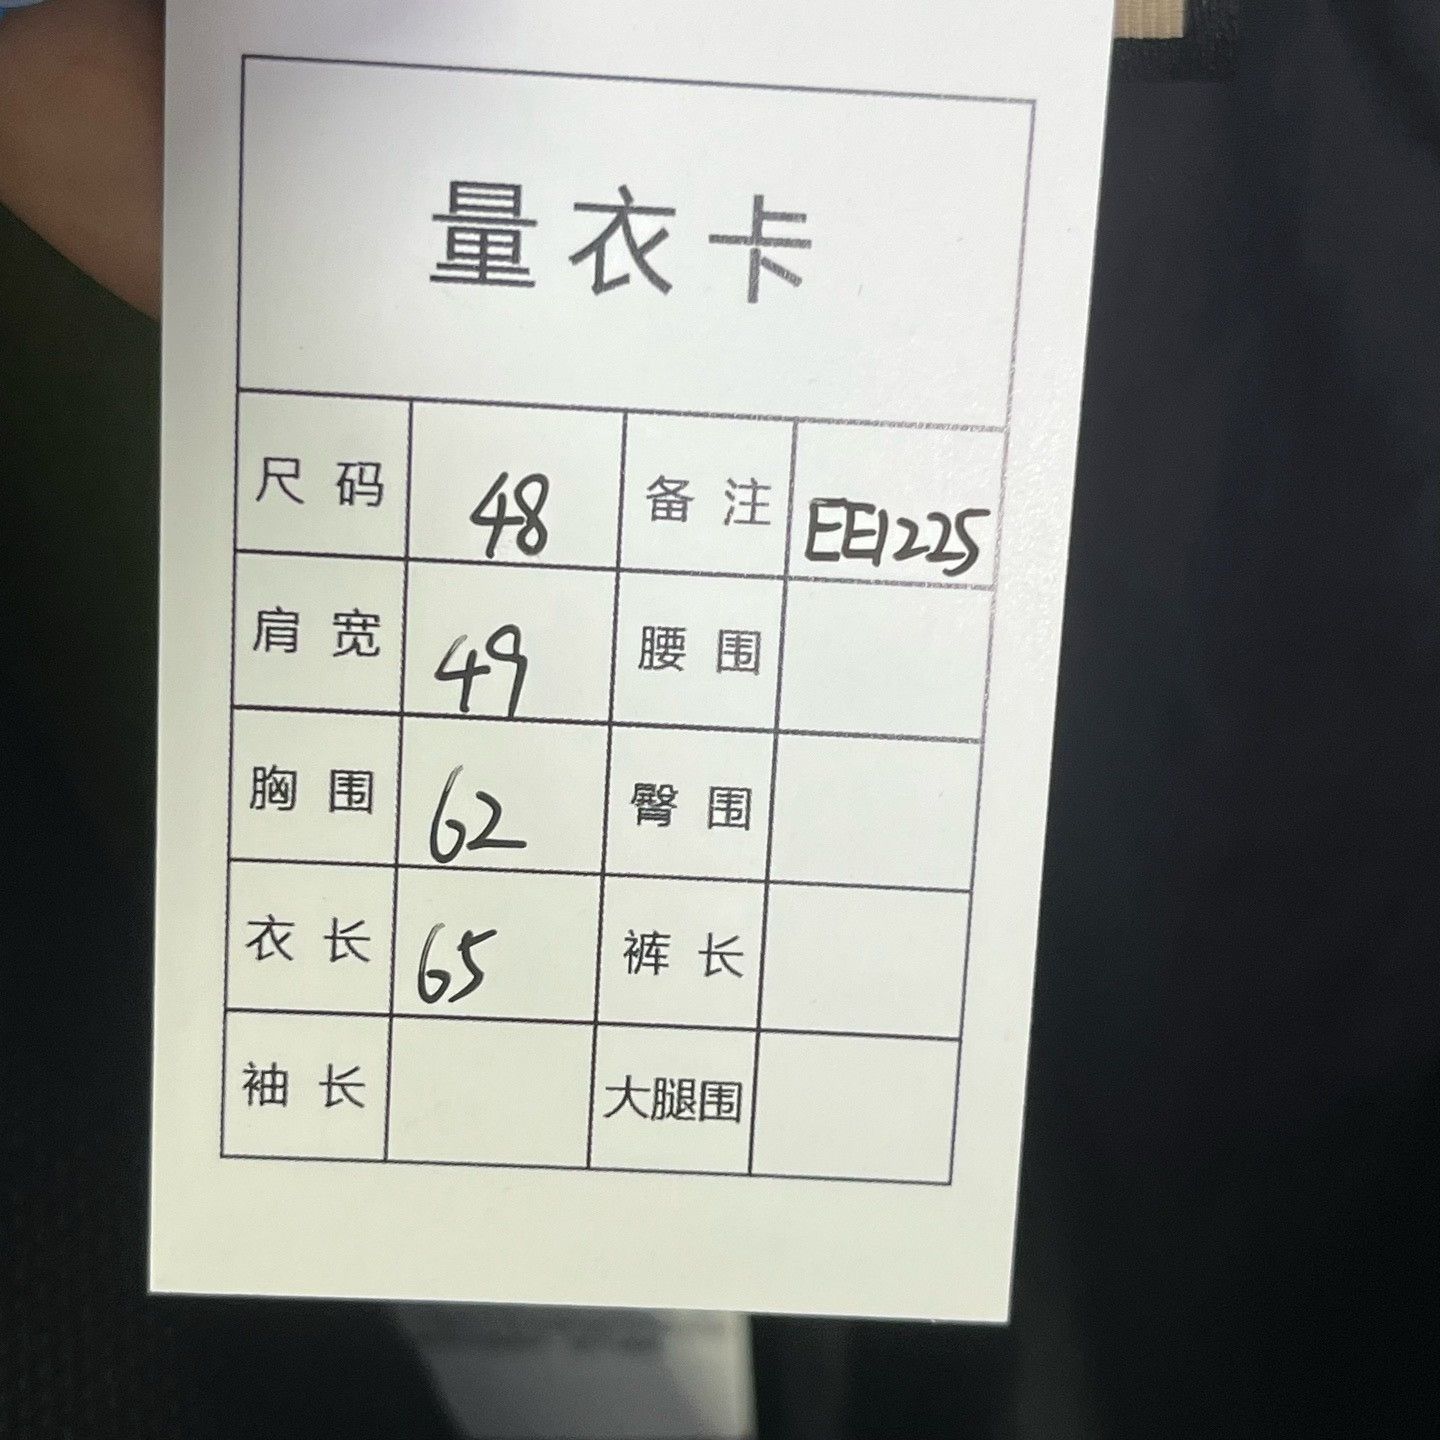 量衣卡
尺码 48 备注 EE1225
肩宽 49 腰围
胸围 62 臀围
衣长 65 裤长
袖长 大腿围